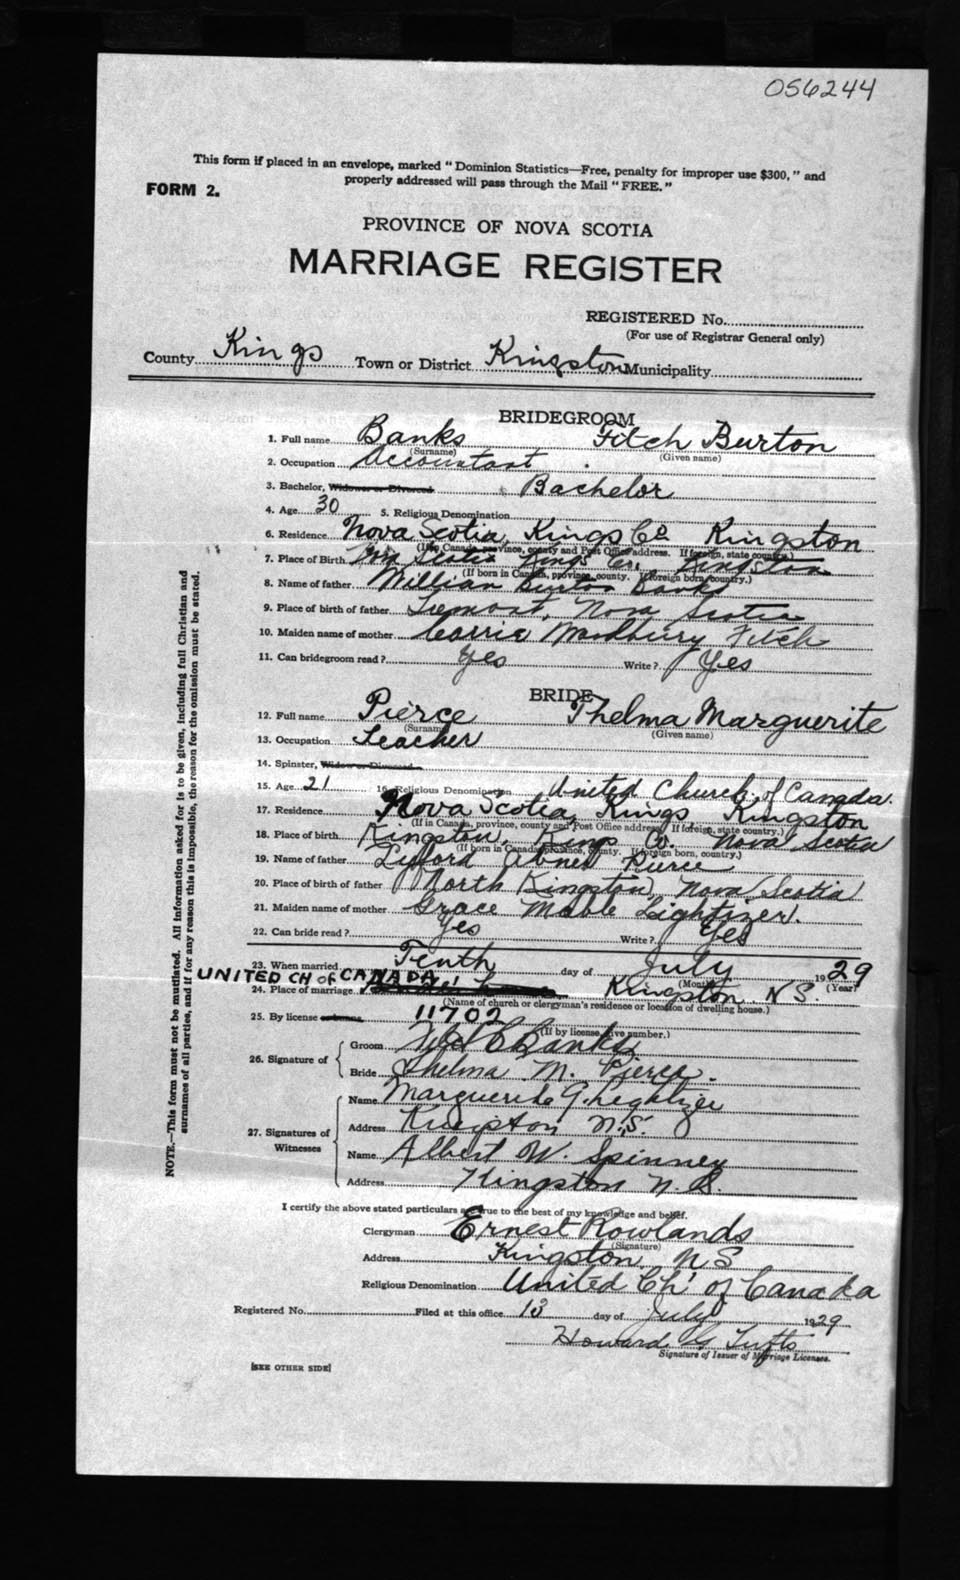 056244
This form if placed in an envelope, marked "Dominion Statistics—Free, penalty for improper use $300," and
properly addressed will pass through the Mail "FREE."
FORM 2.
PROVINCE OF NOVA SCOTIA
MARRIAGE REGISTER
REGISTERED No.
(For use of Registrar General only)
County Kings Town or District Kingston Municipality
BRIDEGROOM
1. Full name Banks Fitch Burton
(Surname) (Given name)
2. Occupation Accountant
3. Bachelor, Widower or Divorced Bachelor
4. Age 30 5. Religious Denomination
6. Residence Nova Scotia, Kings Co Kingston
(If in Canada, province, county and Post Office address. If foreign, state country.)
7. Place of Birth Nova Scotia Kings Co. Kingston
(If born in Canada, province, county. If foreign born, country.)
8. Name of father William Burton Banks
9. Place of birth of father Tremont, Nova Scotia
10. Maiden name of mother Carrie Woodbury Fitch
11. Can bridegroom read? Yes Write? Yes
BRIDE
12. Full name Pierce Thelma Marguerite
(Surname) (Given name)
13. Occupation Teacher
14. Spinster, Widow or Divorced
15. Age 21 16. Religious Denomination United Church of Canada.
17. Residence Nova Scotia, Kings Kingston
(If in Canada, province, county and Post Office address. If foreign, state country.)
18. Place of birth Kingston, Kings Co. Nova Scotia
(If born in Canada, province, county. If foreign born, country.)
19. Name of father Abner Pierce
20. Place of birth of father North Kingston, Nova Scotia
21. Maiden name of mother Grace Mable Lightizer.
22. Can bride read? Yes Write? Yes
23. When married Tenth day of July 1929
(Month) (Year)
UNITED CH OF CANADA
24. Place of marriage Kingston N.S.
(Name of church or clergyman's residence or location of dwelling house.)
25. By license 11702
(If by license, give number.)
26. Signature of
Groom Banks
Bride Thelma M. Pierce.
27. Signatures of
Witnesses
Name Marguerite G. Lightizer
Address Kingston N.S.
Name Albert W. Spinney
Address Kingston N.S.
I certify the above stated particulars are true to the best of my knowledge and belief.
Clergyman Ernest Rowlands
(Signature)
Address Kingston NS
Religious Denomination United Ch' of Canada
Registered No. Filed at this office 13 day of July 1929
Howard G Tufts
Signature of Issuer of Marriage Licenses.
[SEE OTHER SIDE]
NOTE.—This form must not be mutilated. All information asked for is to be given, including full Christian and
surnames of all parties, and if for any reason this is impossible, the reason for the omission must be stated.